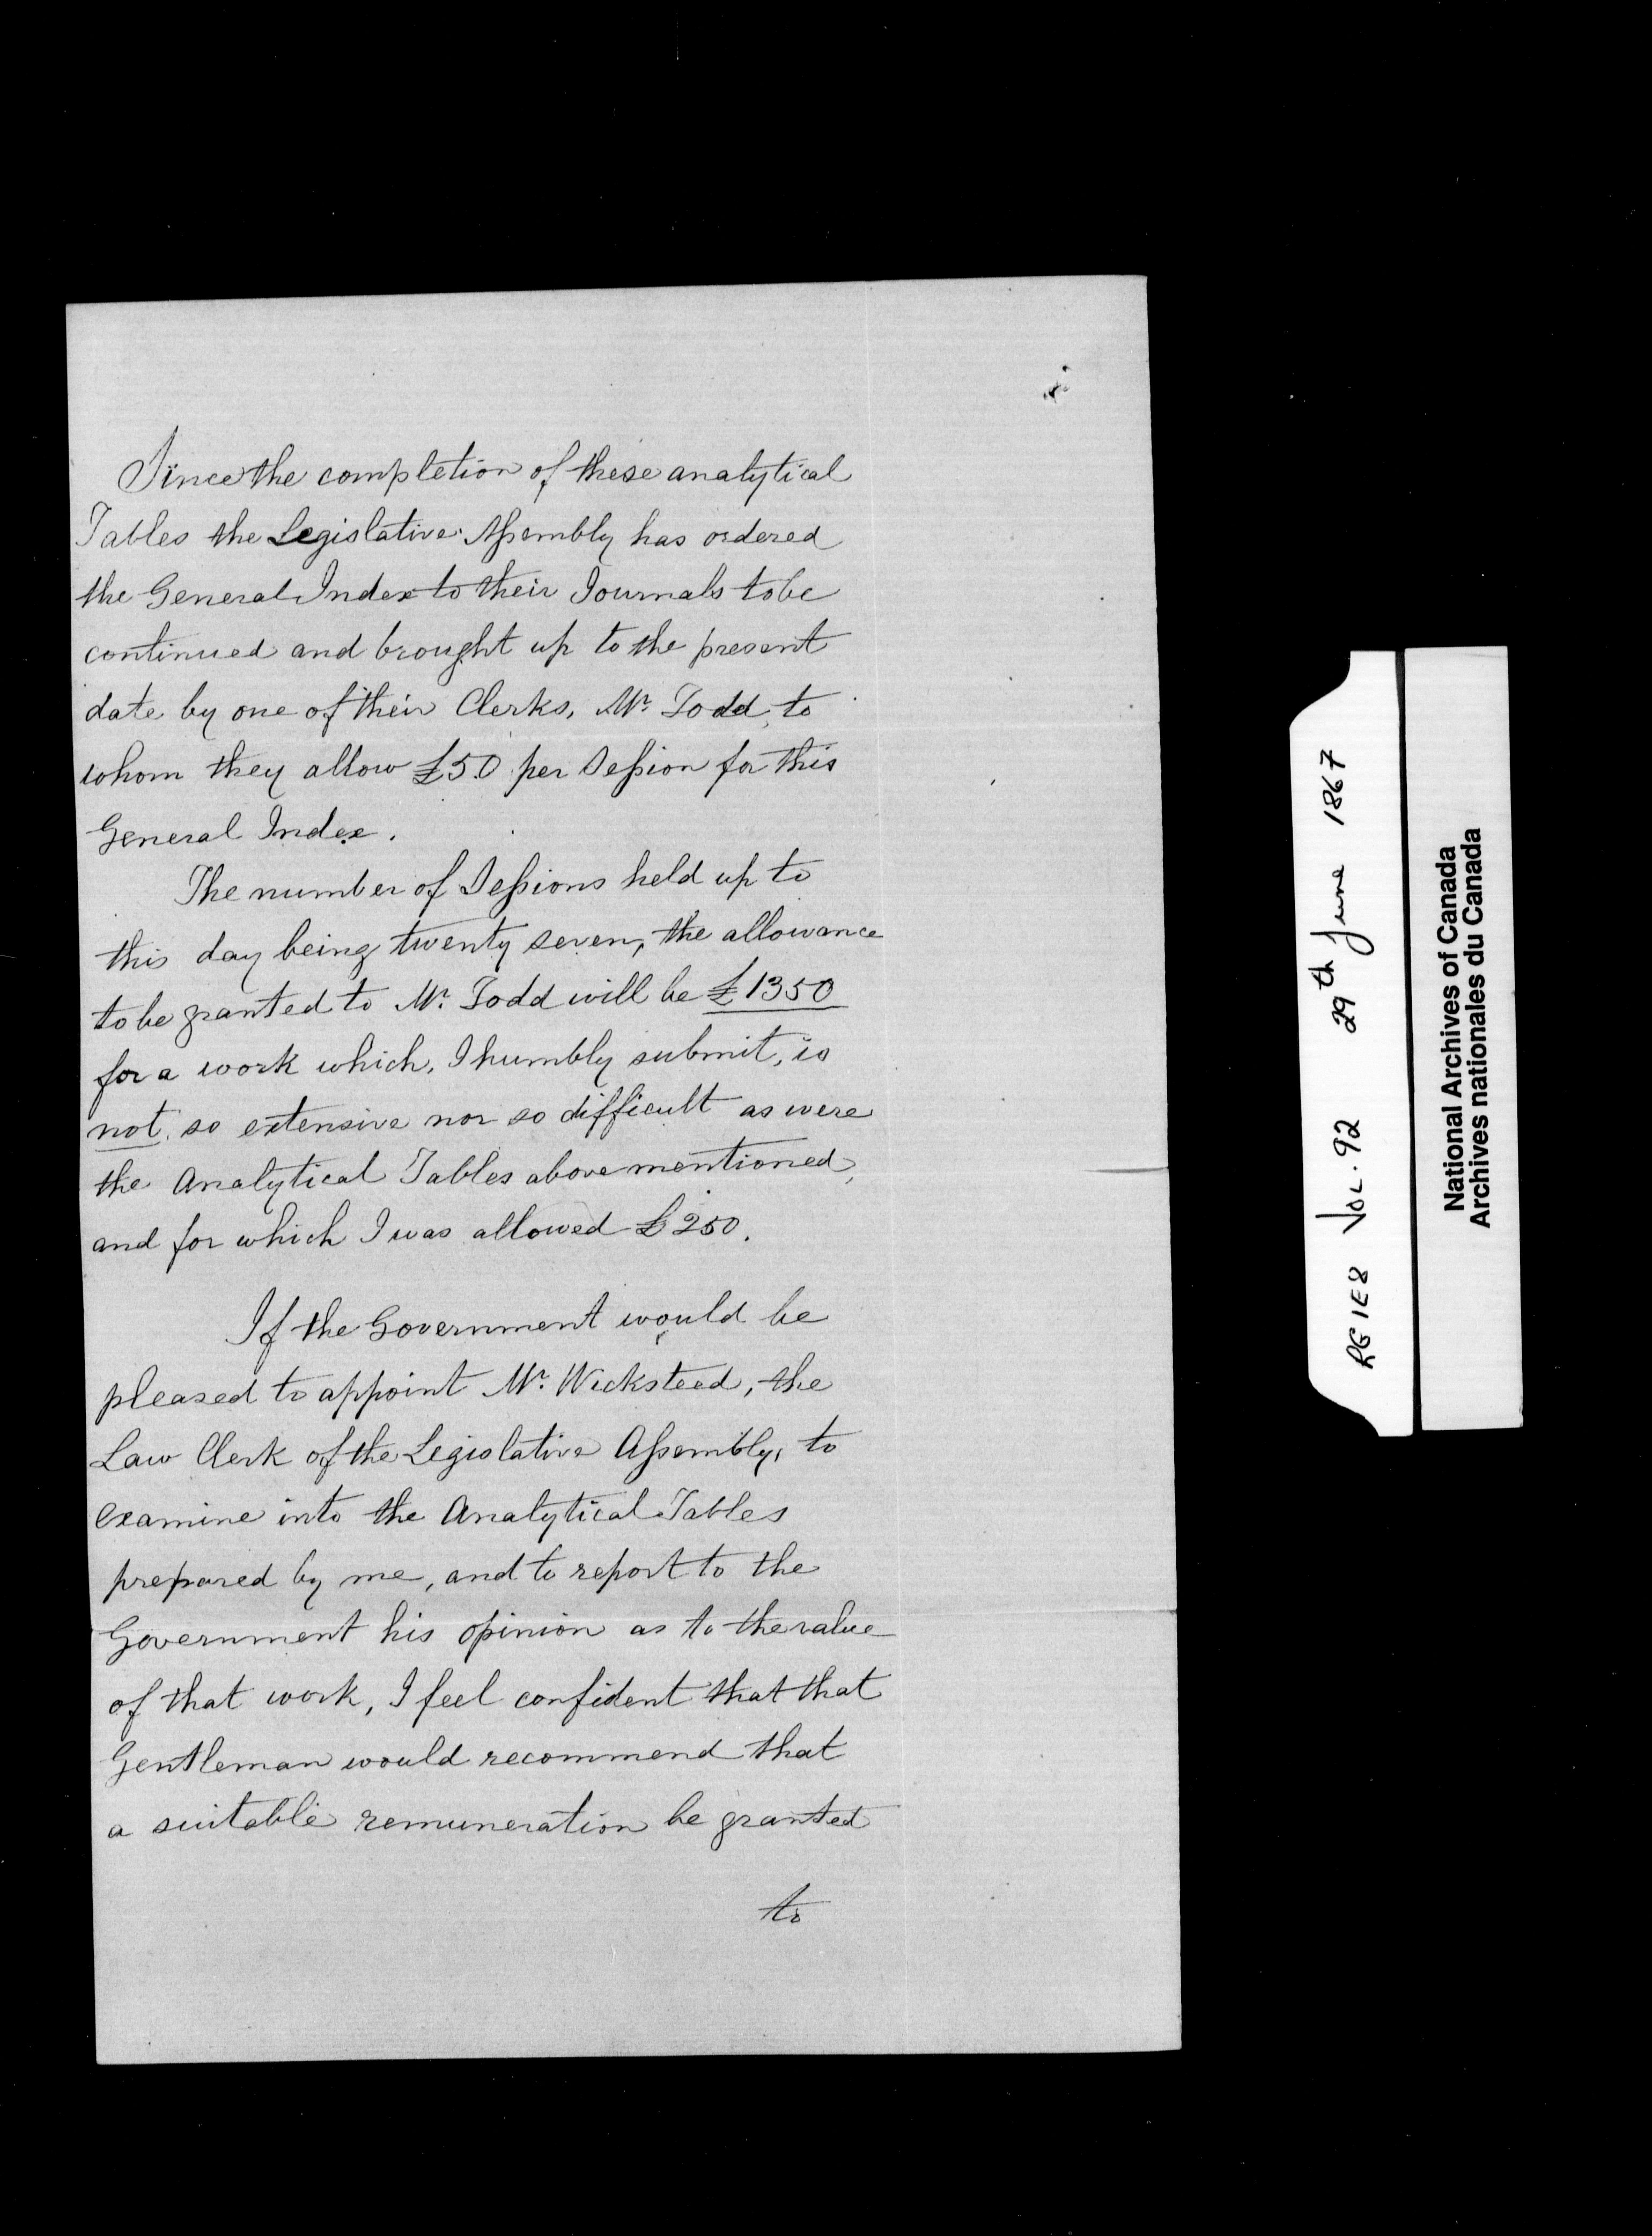 Since the completion of these analytical
Tables the Legislative Assembly has ordered
the General Index to their Journals to be
continued and brought up to the present
date by one of their Clerks, Mr. Todd, to
whom they allow £50 per Session for this
General Index.
The number of Sessions held up to
this day being twenty seven, the allowance
to be granted to Mr. Todd will be £1350
for a work which, I humbly submit, is
not so extensive nor so difficult as were
the Analytical Tables above mentioned,
and for which I was allowed £250.
If the Government would be
pleased to appoint Mr. Wicksteed, the
Law Clerk of the Legislative Assembly, to
examine into the Analytical Tables
prepared by me, and to report to the
Government his opinion as to the value
of that work, I feel confident that that
Gentleman would recommend that
a suitable remuneration be granted
to
RG 1E8 VOL. 92 29th June 1867
National Archives of Canada
Archives nationales du Canada